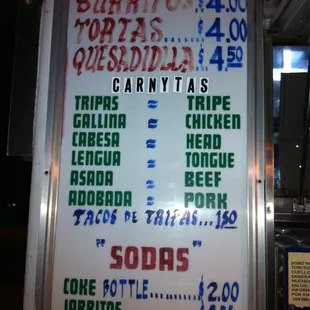 BURRITOS $4.00
TORTAS..... $4.00
QUESADIDLLA $4.50
CARNYTAS
TRIPAS = TRIPE
GALLINA = CHICKEN
CABESA = HEAD
LENGUA = TONGUE
ASADA = BEEF
ADOBADA = PORK
TACOS DE TRIPAS... 1.50
"SODAS"
COKE BOTTLE......... $2.00
JARRITOS